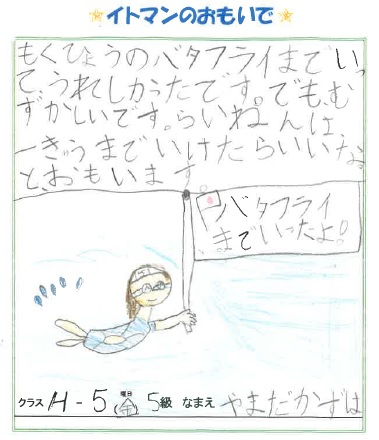 イトマンのおもいで
もくひょうのバタフライまでいっ
て、うれしかったです。でも、む
ずかしいです。らいねんは、
一きゅうまでいけたらいいな
と、おもいます。
バタフライ
までいったよ！
クラス H-5 曜日 金 5級 なまえ やまだかずは